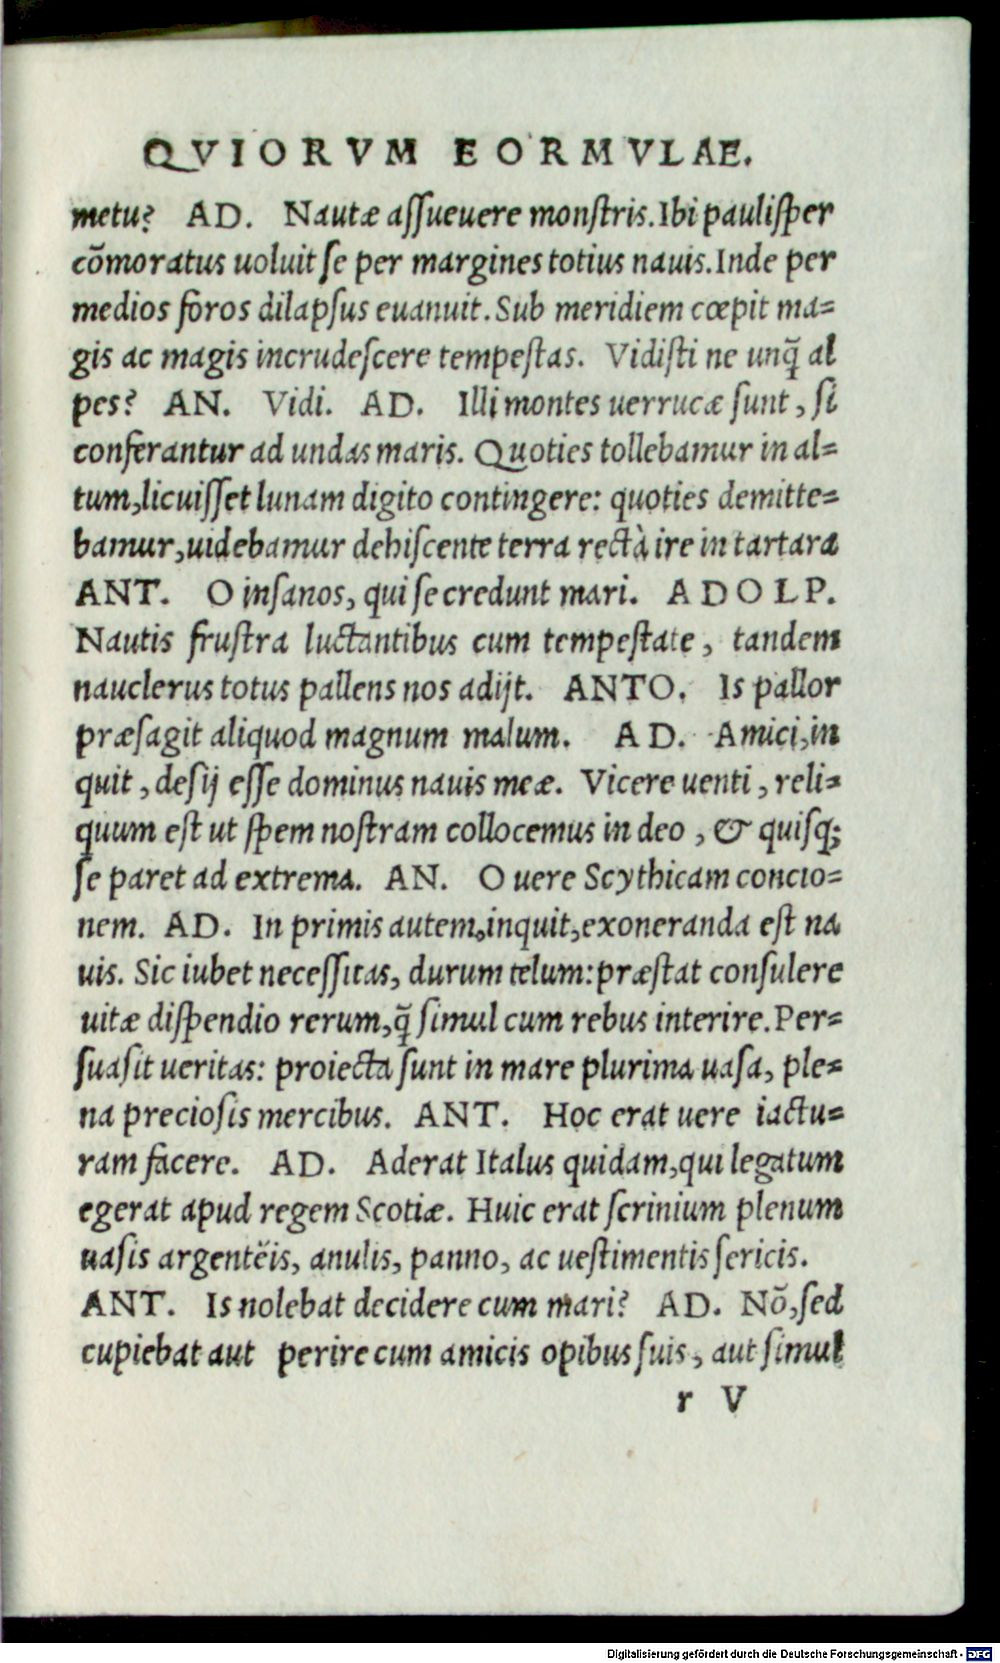 QVIORVM EORMVLAE.
metu? AD. Nautæ aſſueuere monſtris. Ibi pauliſper
cõmoratus uoluit ſe per margines totius nauis. Inde per
medios foros dilapſus euanuit. Sub meridiem cœpit ma=
gis ac magis incrudeſcere tempeſtas. Vidiſti ne unq̃ al
pes? AN. Vidi. AD. Illi montes uerrucæ ſunt, ſi
conferantur ad undas maris. Quoties tollebamur in al=
tum, licuiſſet lunam digito contingere: quoties demitte=
bamur, uidebamur dehiſcente terra rectà ire in tartara
ANT. O inſanos, qui ſe credunt mari. ADOLP.
Nautis fruſtra luctantibus cum tempeſtate, tandem
nauclerus totus pallens nos adijt. ANTO. Is pallor
præſagit aliquod magnum malum. AD. Amici, in
quit, deſij eſſe dominus nauis meæ. Vicere uenti, reli=
quum eſt ut ſpem noſtram collocemus in deo, & quiſq;
ſe paret ad extrema. AN. O uere Scythicam concio=
nem. AD. In primis autem, inquit, exoneranda eſt na
uis. Sic iubet neceſſitas, durum telum: præſtat conſulere
uitæ diſpendio rerum, q̃ ſimul cum rebus interire. Per=
ſuaſit ueritas: proiecta ſunt in mare plurima uaſa, ple=
na precioſis mercibus. ANT. Hoc erat uere iactu=
ram facere. AD. Aderat Italus quidam, qui legatum
egerat apud regem Scotiæ. Huic erat ſcrinium plenum
uaſis argentëis, anulis, panno, ac ueſtimentis ſericis.
ANT. Is nolebat decidere cum mari? AD. Nõ, ſed
cupiebat aut perire cum amicis opibus ſuis, aut ſimul
r V
Digitalisierung gefördert durch die Deutsche Forschungsgemeinschaft - DFG